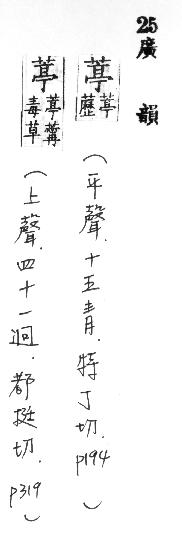 25 廣韻
葶 葶藶 （平聲．十五青．特丁切．p194）
葶 葶藭毒草 （上聲．四十一迥．都挺切．p319）